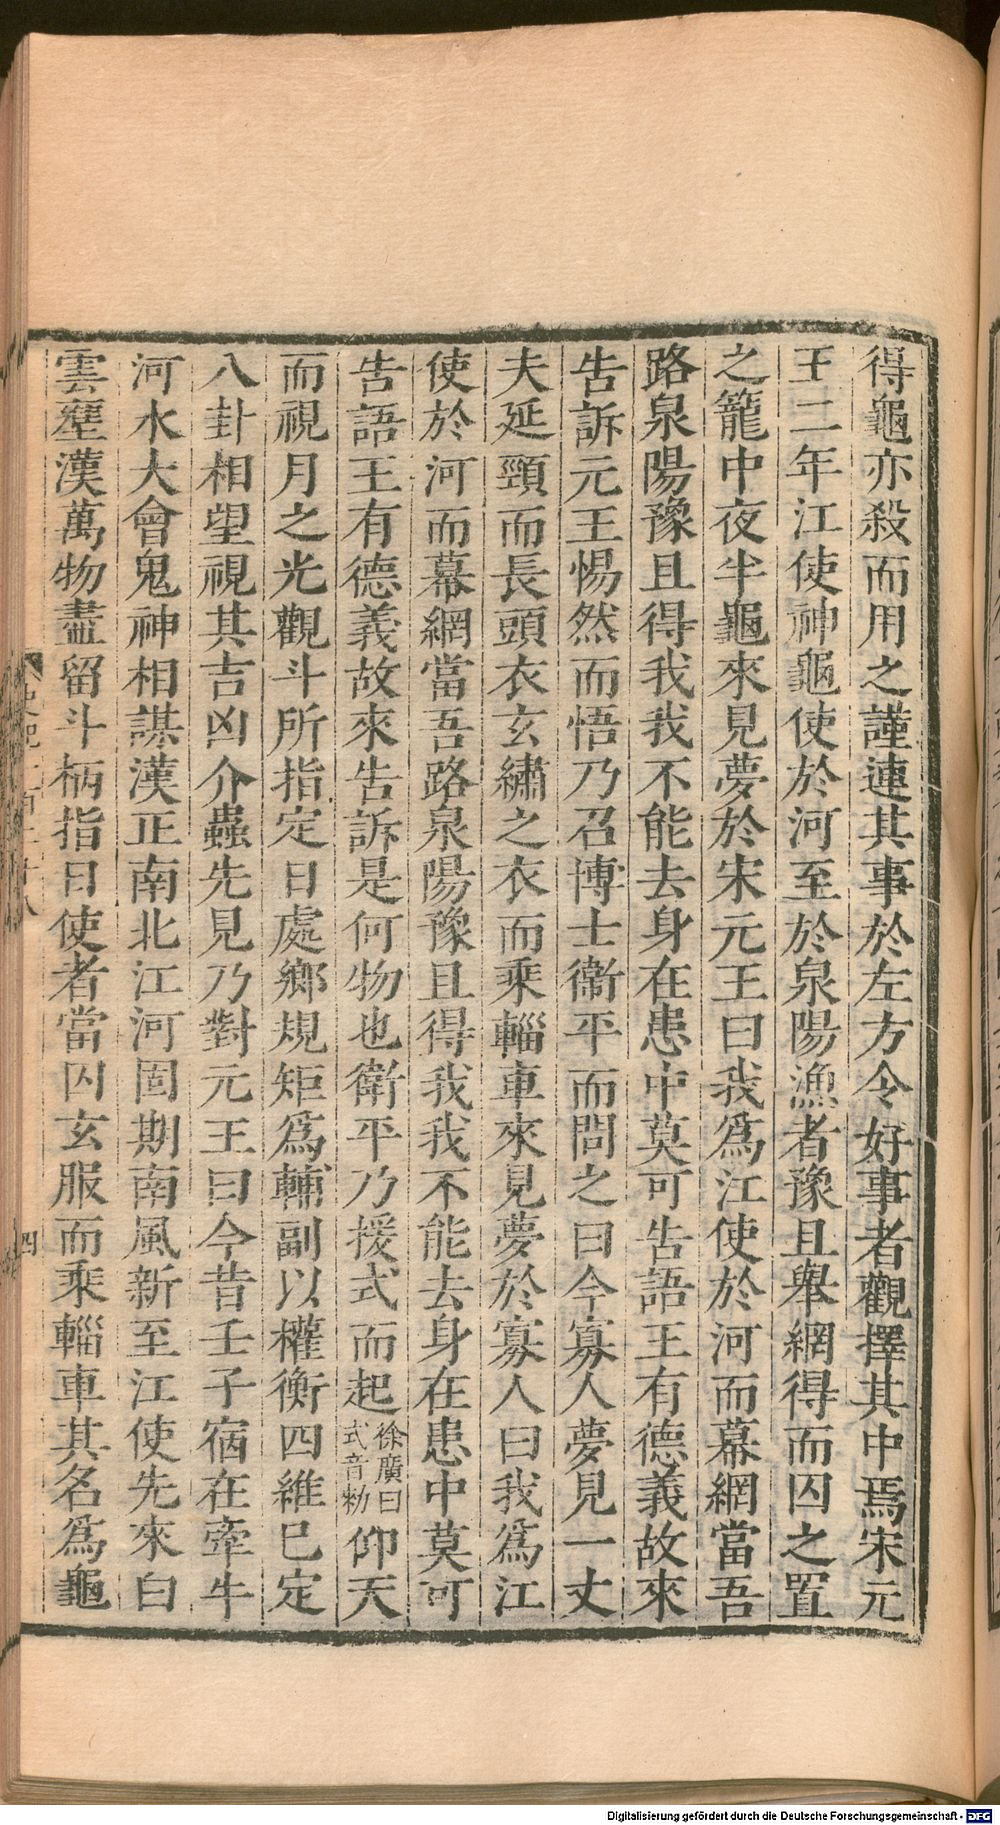 得龜亦殺而用之謹連其事於左方令好事者觀擇其中焉宋元
王二年江使神龜使於河至於泉陽漁者豫且舉網得而囚之置
之籠中夜半龜來見夢於宋元王曰我爲江使於河而幕網當吾
路泉陽豫且得我我不能去身在患中莫可告語王有德義故來
告訴元王惕然而悟乃召博士衞平而問之曰今寡人夢見一丈
夫延頸而長頭衣玄繡之衣而乘輜車來見夢於寡人曰我爲江
使於河而幕網當吾路泉陽豫且得我我不能去身在患中莫可
告語王有德義故來告訴是何物也衛平乃援式而起徐廣曰式音勑仰天
而視月之光觀斗所指定日處鄉規矩爲輔副以權衡四維已定
八卦相望視其吉凶介蟲先見乃對元王曰今昔壬子宿在牽牛
河水大會鬼神相謀漢正南北江河固期南風新至江使先來白
雲壅漢萬物盡留斗柄指日使者當囚玄服而乘輜車其名爲龜
四
Digitalisierung gefördert durch die Deutsche Forschungsgemeinschaft - DFG